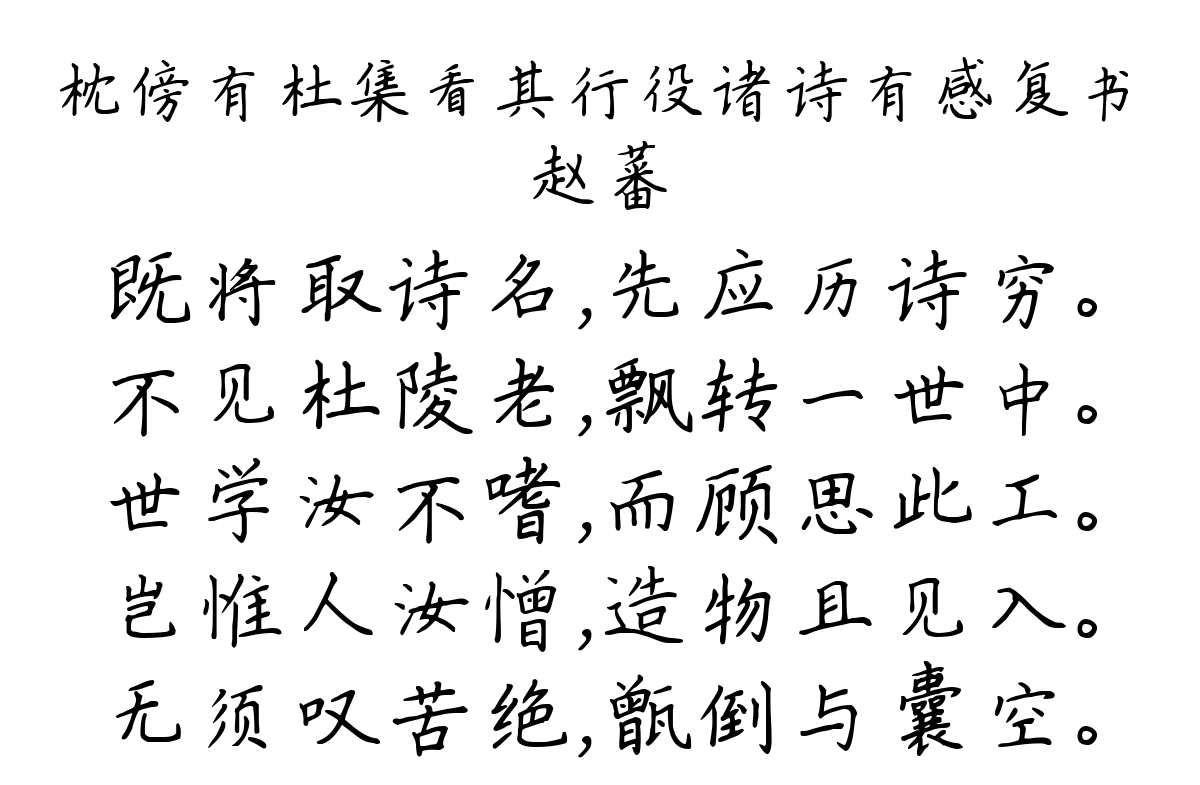 枕傍有杜集看其行役诸诗有感复书
赵蕃
既将取诗名,先应历诗穷。
不见杜陵老,飘转一世中。
世学汝不嗜,而顾思此工。
岂惟人汝憎,造物且见入。
无须叹苦绝,甑倒与囊空。